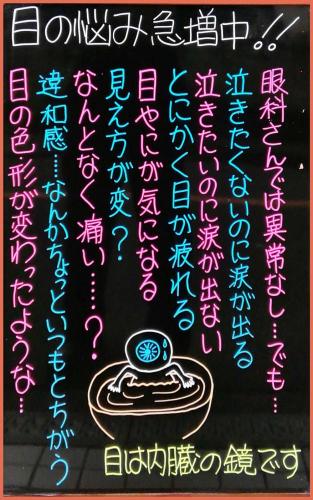 目の悩み急増中!!
眼科さんでは異常なし…でも…
泣きたくないのに涙が出る
泣きたいのに涙が出ない
とにかく目が疲れる
目やにが気になる
見え方が変？
なんとなく痛い……？
違和感……なんかちょっといつもとちがう
目の色・形が変わったような…
目は内臓の鏡です